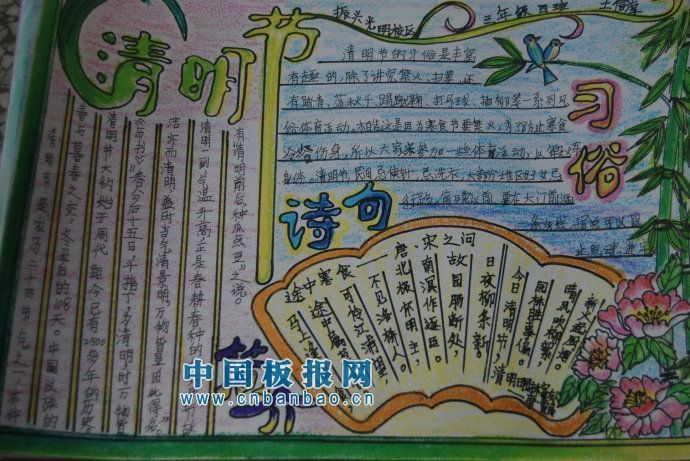 清明节
振兴光明校区
三年级四班
清明节的习俗是丰富
有趣的,除了讲究禁火、扫墓,还
有踏青、荡秋千、蹴鞠、打马球、插柳等一系列风
俗体育活动。相传这是因为寒食节要禁火,为了防止寒食
冷餐伤身,所以大家来参加一些体育活动,以锻炼
身体。清明节,民间忌使针,忌洗衣,大部分地区妇女忌
行路。傍晚以前,要在大门前洒
习俗
诗句
清明节是农历二十四节气之一,在仲
春与暮春之交,冬至后的108天。中国汉族的
清明节大约始于周代,距今已有2500多年的历史
《历书》:春分后十五日,斗指丁,为清明,时万物皆
洁齐而清明,盖时当气清景明,万物皆显,因此得名。
清明一到,气温升高,正是春耕春种的
有“清明前后,种瓜点豆”之说。
途中寒食
唐 宋之问
马上
途中属
可怜江浦
不见洛桥人。
北极怀明主,
南溟作逐臣。
故园肠断处,
日夜柳条新。
今日清明节,
园林胜事偏。
晴风吹柳絮,
新火起厨烟。
中国板报网
www.cnbanbao.cn